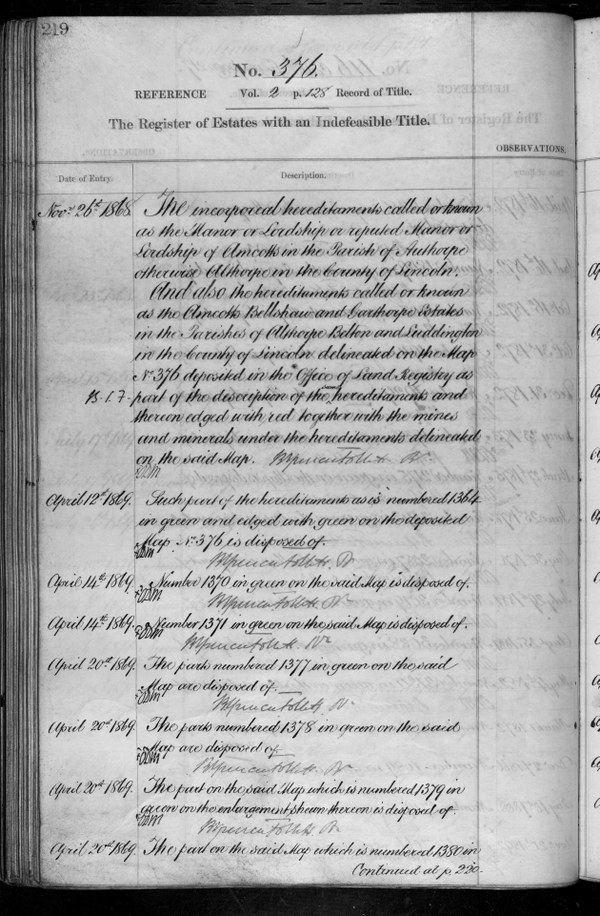 219
No. 376.
REFERENCE Vol. 2 p. 128 Record of Title.
The Register of Estates with an Indefeasible Title.
OBSERVATIONS.
Date of Entry. Description.
Novr. 26th 1868 The incorporeal hereditaments called or known
as the Manor or Lordship or reputed Manor or
Lordship of Amcotts in the Parish of Authorpe
otherwise Althorpe in the County of Lincoln.
And also the hereditaments called or known
as the Amcotts Bellshaw and Garthorpe Estates
in the Parishes of Althorpe Belton and Luddington
in the County of Lincoln delineated on the Map
No. 376 deposited in the Office of Land Registry as
B.1.7. part of the discreption of the hereditaments and
thereon edged with red together with the mines
and minerals under the hereditaments delineated
on the said Map.
April 12th 1869. Such part of the hereditaments as is numbered 1364
in green and edged with green on the deposited
Map No. 376 is disposed of.
April 14th 1869. Number 1370 in green on the said Map is disposed of.
April 14th 1869. Number 1371 in green on the said Map is disposed of.
April 20th 1869. The parks numbered 1377 in green on the said
Map are disposed of.
April 20th 1869. The parks numbered 1378 in green on the said
Map are disposed of
April 20th 1869. The part on the said Map which is numbered 1379 in
green on the enlargement shewn thereon is disposed of.
April 20th 1869. The part on the said Map which is numbered 1380 in
Continued at p. 220.